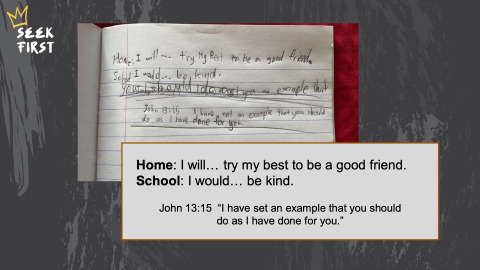 SEEK
FIRST
Home: I will... try My Best to be a good friend.
School: I would... be kind.
example that
John 13:15 I have an example that you should
do as I have done for you.
Home: I will… try my best to be a good friend.
School: I would… be kind.
John 13:15 “I have set an example that you should
do as I have done for you.”